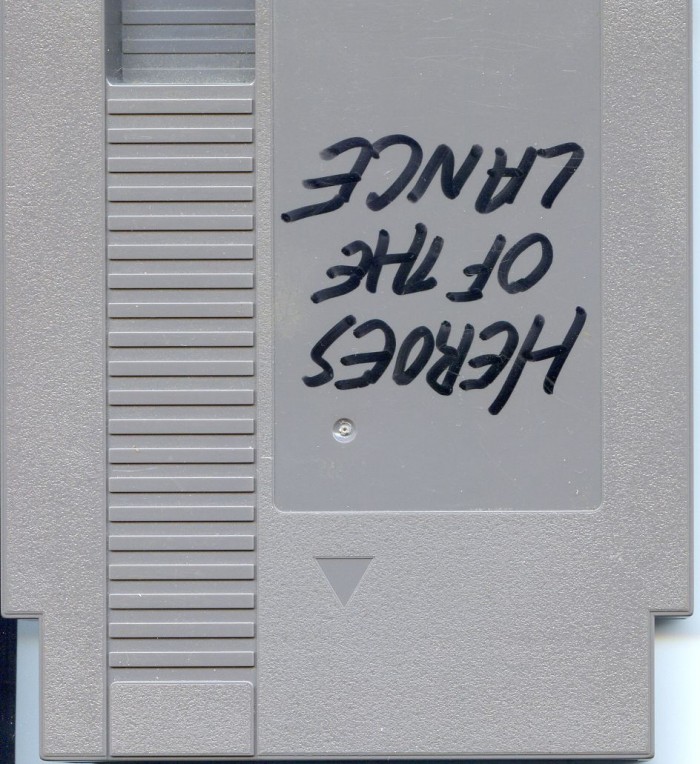 HEROES
OF THE
LANCE